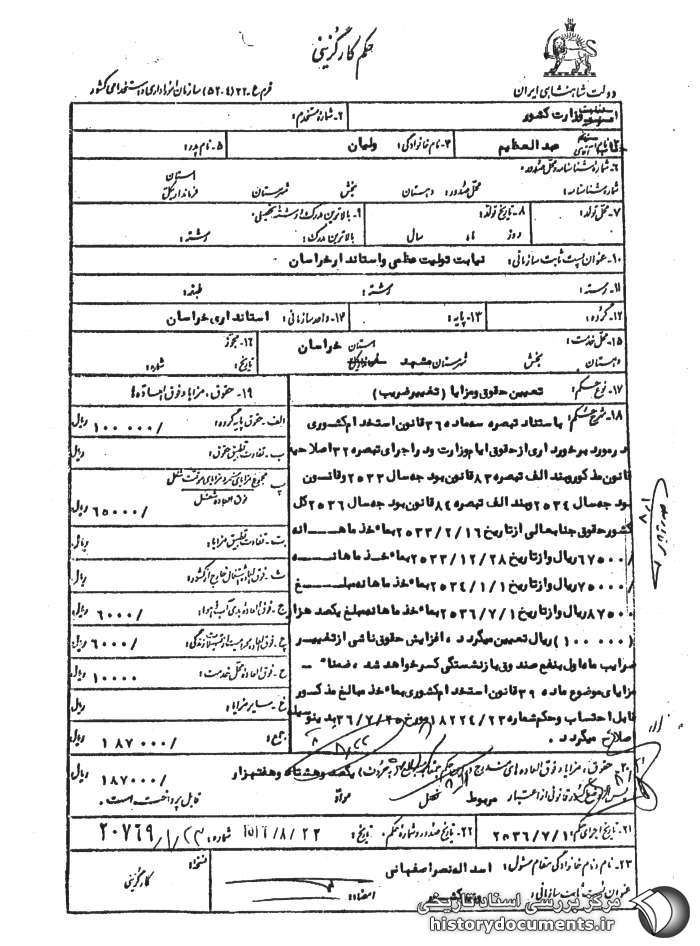 حکم کارگزینی
دولت شاهنشاهی ایران
فرم ع-۲۲ (۴-۵۲) سازمان امور اداری و استخدامی کشور
۱- وزارت کشور
۲- شماره مستخدم:
جناب آقای عبدالعظیم
۴- نام خانوادگی: ولیان
۵- نام پدر:
۶- شماره شناسنامه و محل صدور:
شماره شناسنامه: محل صدور: دهستان بخش شهرستان استان فرمانداری کل
۷- محل تولد:
۸- تاریخ تولد:
روز ماه سال
۹- بالاترین مدرک و رشته تحصیلی
بالاترین مدرک: رشته:
۱۰- عنوان پست ثابت سازمانی: نیابت تولیت عظمی و استاندار خراسان
۱۱- رسته: رشته: طبقه:
۱۲- گروه:
۱۳- پایه:
۱۴- واحد سازمانی: استانداری خراسان
۱۵- محل خدمت: استان خراسان
دهستان بخش شهرستان مشهد
۱۶- مجوز
تاریخ: شماره:
۱۷- نوع حکم: تعیین حقوق و مزایا (تغییر ضریب)
۱۸- شرح حکم: باستناد تبصره سه ماده ۳۶ قانون استخدام کشوری
در مورد برخورداری از حقوق ایام وزارت و در اجرای تبصره ۳۲ اصلاحیه
قانون مذکور و بند الف تبصره ۸۳ قانون بودجه سال ۲۵۳۳ و قانون
بودجه سال ۲۵۳۴ و بند الف تبصره ۸۴ قانون بودجه سال ۲۵۳۶ کل
کشور حقوق جنابعالی از تاریخ ۲۵۳۳/۲/۱۶ بماخذ ماهانه
۶۷۵۰۰/ ریال و از تاریخ ۲۵۳۳/۱۲/۲۸ بماخذ ماهانه
۷۵۰۰۰/ ریال و از تاریخ ۲۵۳۴/۱/۱ بماخذ ماهانه مبلغ
۸۷۵۰۰ ریال و از تاریخ ۲۵۳۶/۷/۱ بماخذ ماهانه مبلغ یکصد هزار
(۱۰۰ ۰۰۰) ریال تعیین میگردد، افزایش حقوق ناشی از تغییر
ضرایب ماه اول بنفع صندوق بازنشستگی کسر خواهد شد، ضمنا" -
مزایای موضوع ماده ۳۹ قانون استخدام کشوری بماخذ مبالغ مذکور
قابل احتساب و حکم شماره ۱۸۲۲۴/۲۳ مورخ ۳۶/۷/۲۵ بدینوسیله
اصلاح میگردد.
۱۹- حقوق، مزایا و فوق العاده ها:
الف- حقوق پایه گروه: ۱۰۰ ۰۰۰/ ریال
ب- تفاوت تطبیق حقوق: ریال
پ- مجموع مزایای مستمر و مزایای موقت شغل
فوق العاده شغل ۶۵۰۰۰/ ریال
ت- تفاوت تطبیق مزایا: ریال
ث- فوق العاده اشتغال خارج از کشور: ریال
ج- فوق العاده بدی آب و هوا: ۶۰۰۰/ ریال
چ- ۶۰۰۰/ ریال
ح- فوق العاده محل خدمت: ۱۰۰۰۰ ریال
خ- سایر مزایا: ریال
جمع: ۱۸۷۰۰۰/ ریال
۲۰- حقوق، مزایا و فوق العاده های مندرج در این حکم بمبلغ (به حروف) یکصد و هشتاد و هفت هزار ۱۸۷۰۰۰/ ریال
از اعتبار مربوط فصل مواد قابل پرداخت است.
۲۱- تاریخ اجرای حکم: ۲۵۳۶/۷/۱
۲۲- تاریخ صدور و شماره حکم: تاریخ: ۲۵۳۶/۸/۲۲ شماره: ۲۰۷۶۹/۱/۲۳
۲۳- نام و نام خانوادگی مقام مسئول: اسداله نصر اصفهانی
عنوان پست ثابت سازمانی: وزیر کشور امضاء:
نسخه: کارگزینی
مرکز بررسی اسناد تاریخی
historydocuments.ir